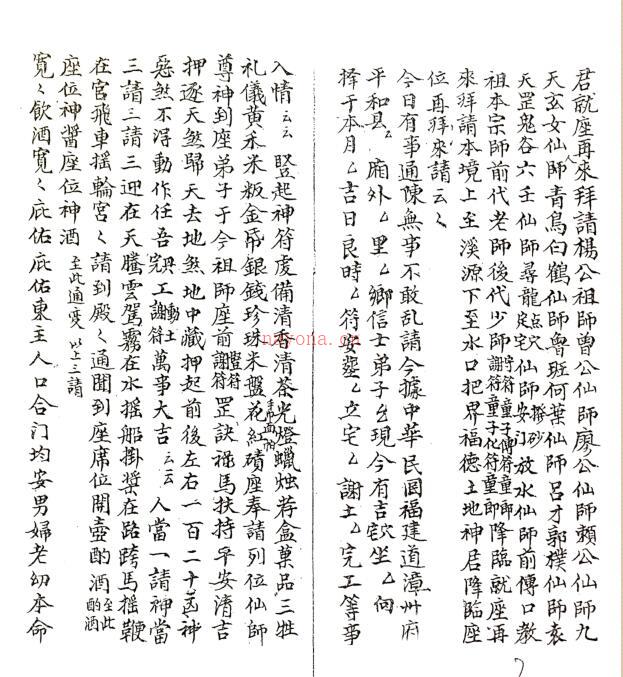 君就座再來拜請楊公祖師曾公仙師廖公仙師賴公仙師九
天玄女仙師青烏白鶴仙人師魯班何葉仙師呂才郭樸仙師袁
天罡鬼谷六壬仙師尋龍點穴定宅仙師安門撥砂放水仙師前傳口教
祖本宗師前代老師後代少師守符童子傳符童郎謝符童子化符童郎降臨就座再
來拜請本境上至溪源下至水口把界福德土地神君降臨座
位再拜來請云々
今日有事通陳無事不敢乱請今據中華民囯福建道漳州府
平和縣厶廂外厶里厶鄉信士弟子厶現今有吉穴坐厶向
擇于本月厶吉日良時厶符安𡑞厶立宅厶謝土厶完工等事
入情云云 豎起神符虔備清香清茶光燈蠟烛荐盒菓品三牲
礼儀黃禾米粄金帋銀錢珍珠米盤花紅手巾面帕磧座奉請列位仙師
尊神到座弟子于今祖師座前豎符謝符罡訣祿馬扶持平安清吉
押逐天煞歸天去地煞地中藏押起前後左右一百二十凶神
惡煞不淂動作任吾興工動土完工謝符萬事大吉云云 人當一請神當
三請三請三迎在天騰雲駕霧在水摇船掛槳在路跨馬摇鞭
在宮飛車摇輪宮々請到殿々通聞到座席位開壺酌酒至此酌酒
座位神醬座位神酒 至此通变以上三請
寬々飲酒寬々庇佑庇佑東主人口合门均安男婦老幼本命
nayona.cn
7